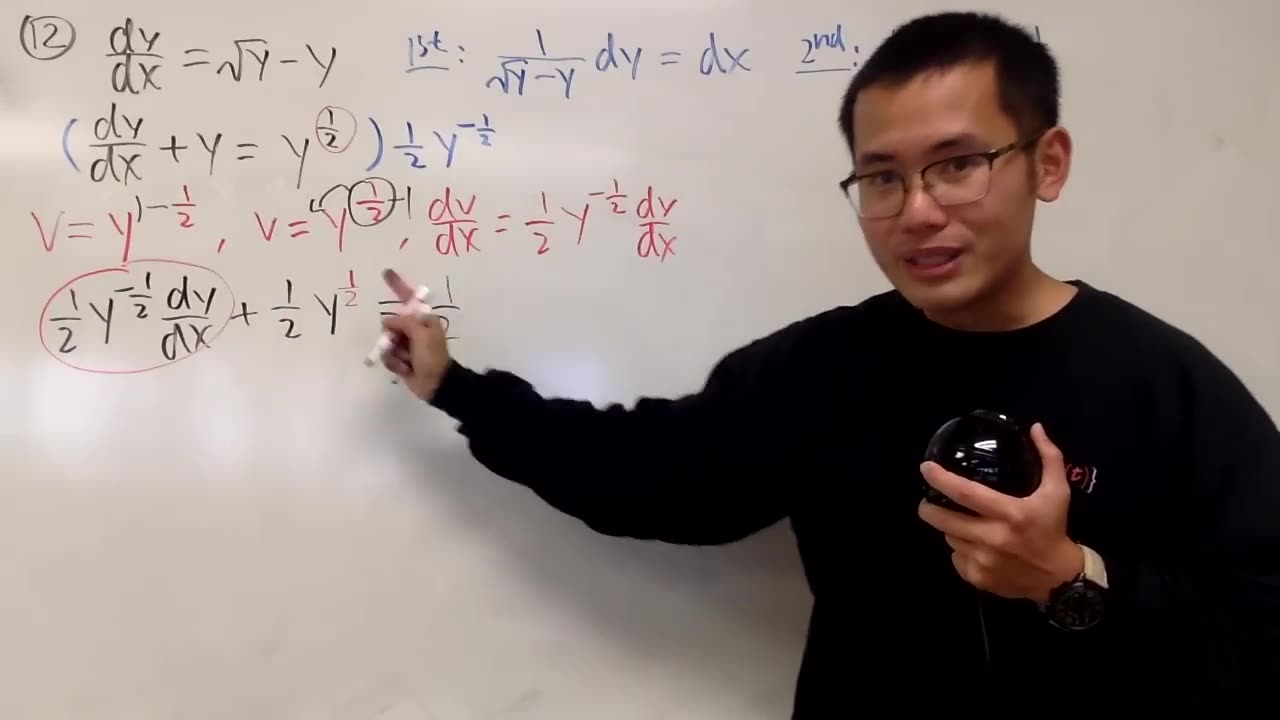 ⑫ dy/dx = √y - y   1st: 1/(√y - y) dy = dx   2nd:
(dy/dx + y = y^(1/2)) 1/2 y^(-1/2)
v = y^(1-1/2), v = y^(1/2) -1, dv/dx = 1/2 y^(-1/2) dy/dx
1/2 y^(-1/2) dy/dx + 1/2 y^(1/2) = 1/2
(t)}